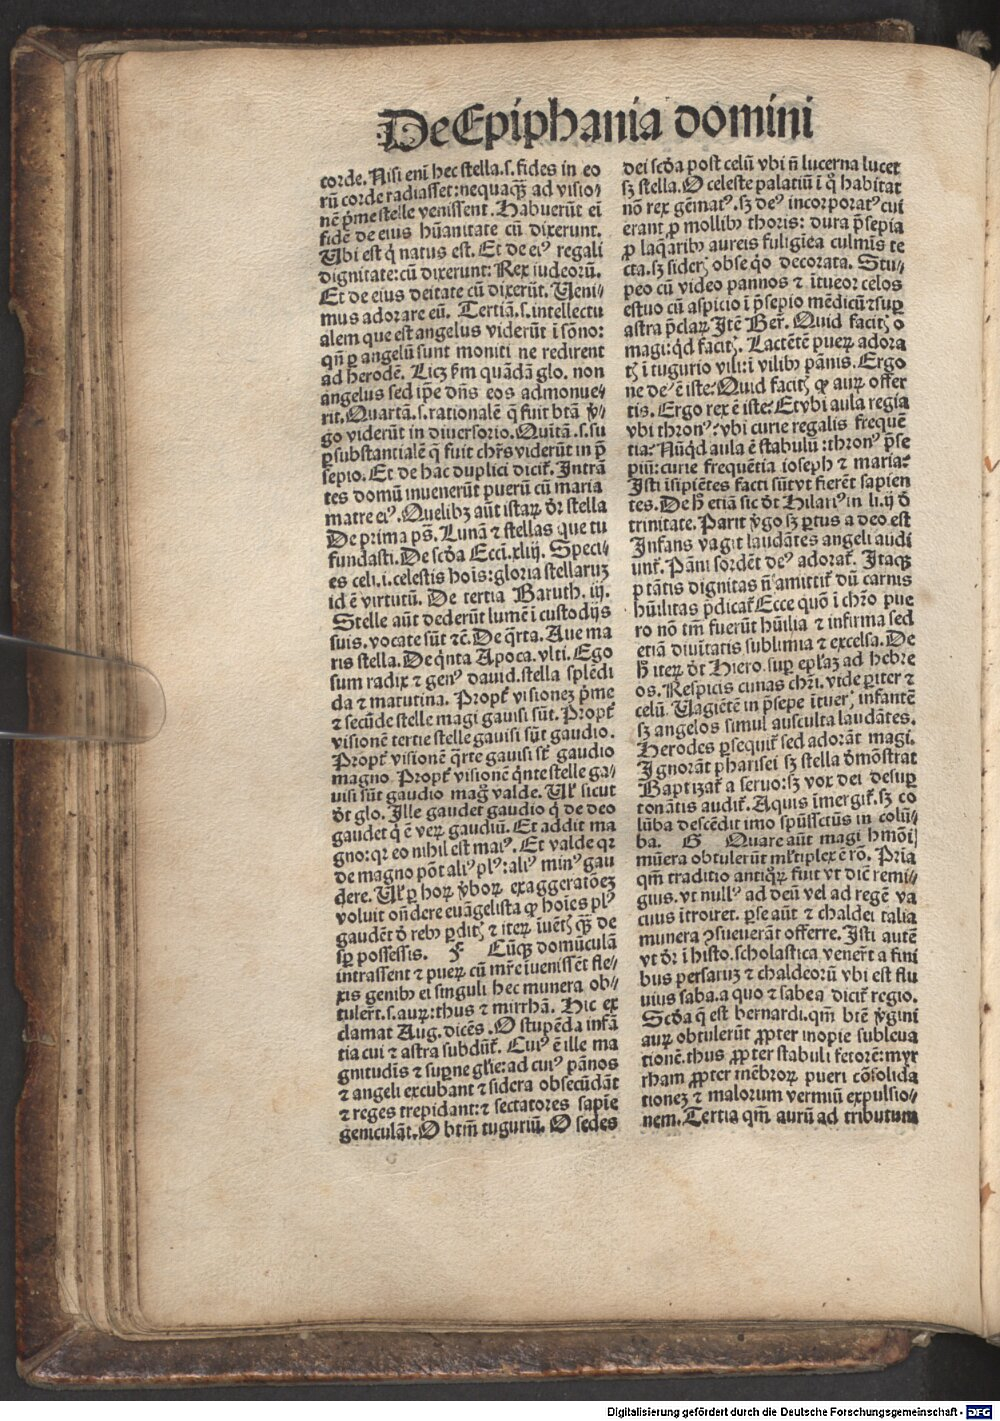 De Epiphania domini
corde. Nisi eni̅ hec stella.s. fides in eo
ru̅ corde radiasset: nequaq̅ȝ ad visio⸗
ne̅ p̅me stelle venissent. Habueru̅t ei̅
fide̅ de eius hu̅anitate cu̅ dixerunt.
Ubi est q̇ natus est. Et de ei⁹ regali
dignitate: cu̅ dixerunt: Rex iudeoru̅.
Et de eius deitate cu̅ dixeru̅t. Ueni⸗
mus adorare eu̅. Tertia̅.s. intellectu
alem que est angelus videru̅t i̅ so̅no:
qn̅ ꝑ angelu̅ sunt moniti ne redirent
ad herode̅. Licȝ ẜm qua̅da̅ glo. non
angelus sed ip̅e dn̅s eos admonue⸗
rit. Quarta̅.s. rationale̅ q̅ fuit bt̅a v̅⸗
go viderunt in diuersorio. Qui̅ta̅.s. su
ꝑsubstantiale̅ q̅ fuit chr̅s viderūt in p̅
sepio. Et de hac duplici dicit̅. Intra̅
tes domu̅ inuenerūt pueru̅ cu̅ maria
matre ei⁹. Quelibȝ au̅t istaꝝ dr̅ stella
De prima ps̅. Luna̅ ⁊ stellas que tu
fundasti. De scd̅a Ecci̅. xliij. Speci⸗
es celi.i. celestis ho̅is: gloria stellaruȝ
id e̅ virtutu̅. De tertia Baruth. iij.
Stelle au̅t dederu̅t lume̅ i̅ custodijs
suis. vocate su̅t ⁊c̅. De q̅rta. Aue ma
ris stella. De q̇nta Apoca. vlti. Ego
sum radix ⁊ gen⁹ dauid. stella sple̅di
da ⁊ matutina. Propt̅ visioneȝ p̅me
⁊ secu̅de stelle magi gauisi su̅t. Propt̅
visione̅ tertie stelle gauisi su̅t gaudio.
Propt̅ visione̅ q̅rte gauisi st̅ gaudio
magno. Propt̅ visione̅ q̇nte stelle ga⸗
uisi su̅t gaudio mag̊ valde. Ul̅ sicut
dt̅ glo. Ille gaudet gaudio q̇ de deo
gaudet q̇ e̅ veꝝ gaudiu̅. Et addit ma
gno: qꝛ eo nihil est mai⁹. Et valde qꝛ
de magno po̅t ali⁹ pl⁹: ali⁹ min⁹ gau
dere. Ul̅ ꝑ hoꝝ v̅boꝝ exaggerato̅eȝ
voluit on̅dere eua̅gelista ꝙ ho̅ies pl⁹
gaude̅t d̅ rebȝ ꝑditꝭ ⁊ iteꝝ iue̅tꝭ q̅ȝ de
sꝑ possessis. F Cu̅qȝ domu̅cula̅
intrassent ⁊ pueꝝ cu̅ mr̅e i̅uenisse̅t fle⸗
xis genibȝ ei singuli hec munera ob⸗
tuler̅t.s. auꝝ: thus ⁊ mirrha̅. Hic ex
clamat Aug. dice̅s. O stupe̅da infa̅
tia cui ⁊ astra subdu̅t̅. Cui⁹ e̅ ille ma
gnitudi̅s ⁊ suꝑne gl̅ie: ad cui⁹ pa̅nos
⁊ angeli excubant ⁊ sidera obsecu̅da̅t
⁊ reges trepidant: ⁊ sectatores sapie̅
genicula̅t. O btm̅ tuguriu̅. O sedes
dei scd̅a post celu̅ vbi n̅ lucerna lucet
sȝ stella. O celeste palatiu̅ i̅ q̊ habitat
no̅ rex ge̅mat⁹. sȝ de⁹ incorporat⁹ cui
erant ꝓ mollibȝ thoris: dura p̅sepia
ꝓ laq̅aribȝ aureis fuligi̅ea culmi̅s te
cta. sȝ siderꝭ obseq̇o decorata. Stu⸗
peo cu̅ video pannos ⁊ i̅tueor celos
estuo cu̅ aspicio i̅ p̅sepio me̅dicu̅ ⁊ suꝑ
astra p̅claꝝ. Ite̅ Ber̅. Quid facitꝭ o
magi: q̇d facitꝭ. Lacte̅te̅ pueꝝ adora
tꝭ i̅ tugurio vili: i̅ vilibȝ pa̅nis. Ergo
ne de⁹ e̅ iste? Quid facitꝭ ꝙ auꝝ offer
tis. Ergo rex e̅ iste? Et vbi aula regia
vbi thron⁹? vbi curie regalis freque̅
tia? Nu̅q̇d aula e̅ stabulu̅: thron⁹ p̅se
piu̅: curie freque̅tia ioseph ⁊ maria?
Isti i̅sipie̅tes facti su̅t vt fiere̅t sapien
tes. De h̅ etia̅ sic dt̅ Hilari⁹ in li. ij d̅
trinitate. Parit v̅go sȝ ꝑtus a deo est
Infans vagit lauda̅tes angeli audi
unt̅. Pa̅ni sorde̅t de⁹ adorat̅. Itaqȝ
ꝑ ta̅tis dignitas n̅ amittit̅ du̅ carnis
hu̅ilitas p̅dicat̅ Ecce quo̅ i̅ chr̅o pue
ro no̅ tm̅ fueru̅t hu̅ilia ⁊ infirma sed
etia̅ diui̅tatis sublimia ⁊ excelsa. De
h̅ iteꝝ dt̅ Hiero. suꝑ epl̅aȝ ad hebre
os. Respicis cunas chr̅i. vide ꝑiter ⁊
celu̅. Uagie̅te̅ in p̅sepe i̅tuer⁹ infante̅
sȝ angelos simul ausculta lauda̅tes.
Herodes ꝑsequit̅ sed adora̅t magi.
Ignora̅t pharisei sȝ stella d̅mo̅strat
Baptizat̅ a seruo: sȝ vox dei desuꝑ
tona̅tis audit̅. Aquis i̅mergit̅. sȝ co
lu̅ba desce̅dit imo spu̅ssct̅us in colu̅⸗
ba. G Quare au̅t magi hmo̅i
mu̅era obtuleru̅t ml̅tiplex e̅ ro̅. P̅ia
qm̅ traditio antiq̅ꝝ fuit vt dic̅ remi⸗
gius. vt null⁹ ad deu̅ vel ad rege̅ va
cuus i̅troiret. ꝑse au̅t ⁊ chaldei talia
munera ꝯsueuera̅t offerre. Isti aute̅
vt dr̅ i̅ histo. scholastica vener̅t a fini
bus persaruȝ ⁊ chaldeoru̅ vbi est flu
uius saba. a quo ⁊ sabea dicit̅ regio.
Scd̅a q̅ est bernardi. qm̅ bt̅e v̅gini
auꝝ obtulerūt ꝓpter inopie subleua
tione̅. thus ꝓpter stabuli fetore̅: myr
rham ꝓpter me̅broꝝ pueri co̅solida
tioneȝ ⁊ malorum vermiu̅ expulsio⸗
nem. Tertia qm̅ auru̅ ad tributum
Digitalisierung gefördert durch die Deutsche Forschungsgemeinschaft - DFG